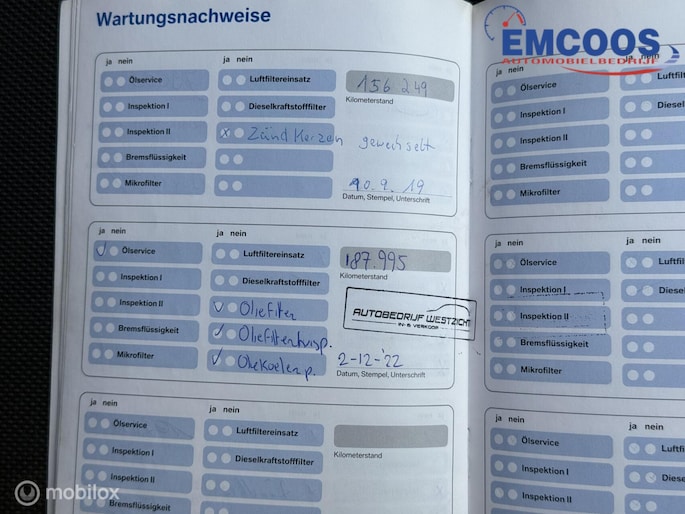 Wartungsnachweise
EMCOOS
AUTOMOBIELBEDRIJF
ja nein
ja nein
Ölservice
Luftfiltereinsatz
156 249
Inspektion I
Dieselkraftstofffilter
Kilometerstand
Inspektion II
x Zündkerzen gewechselt
Bremsflüssigkeit
Mikrofilter
10.9.19
Datum, Stempel, Unterschrift
ja nein
ja nein
Ölservice
Luftfiltereinsatz
187.995
Inspektion I
Dieselkraftstofffilter
Kilometerstand
Inspektion II
Oliefilter
AUTOBEDRIJF WESTZICHT
IN- & VERKOOP
Bremsflüssigkeit
Mikrofilter
2-12-'22
Datum, Stempel, Unterschrift
ja nein
ja nein
Ölservice
Luftfiltereinsatz
Inspektion I
Dieselkraftstofffilter
Kilometerstand
Inspektion II
Bremsflüssigkeit
ja nein
Ölservice
Inspektion I
Inspektion II
Bremsflüssigkeit
Mikrofilter
ja nein
ja
Ölservice
Inspektion I
Inspektion II
Bremsflüssigkeit
Mikrofilter
ja nein
ja
Ölservice
Inspektion I
Inspektion II
mobilox